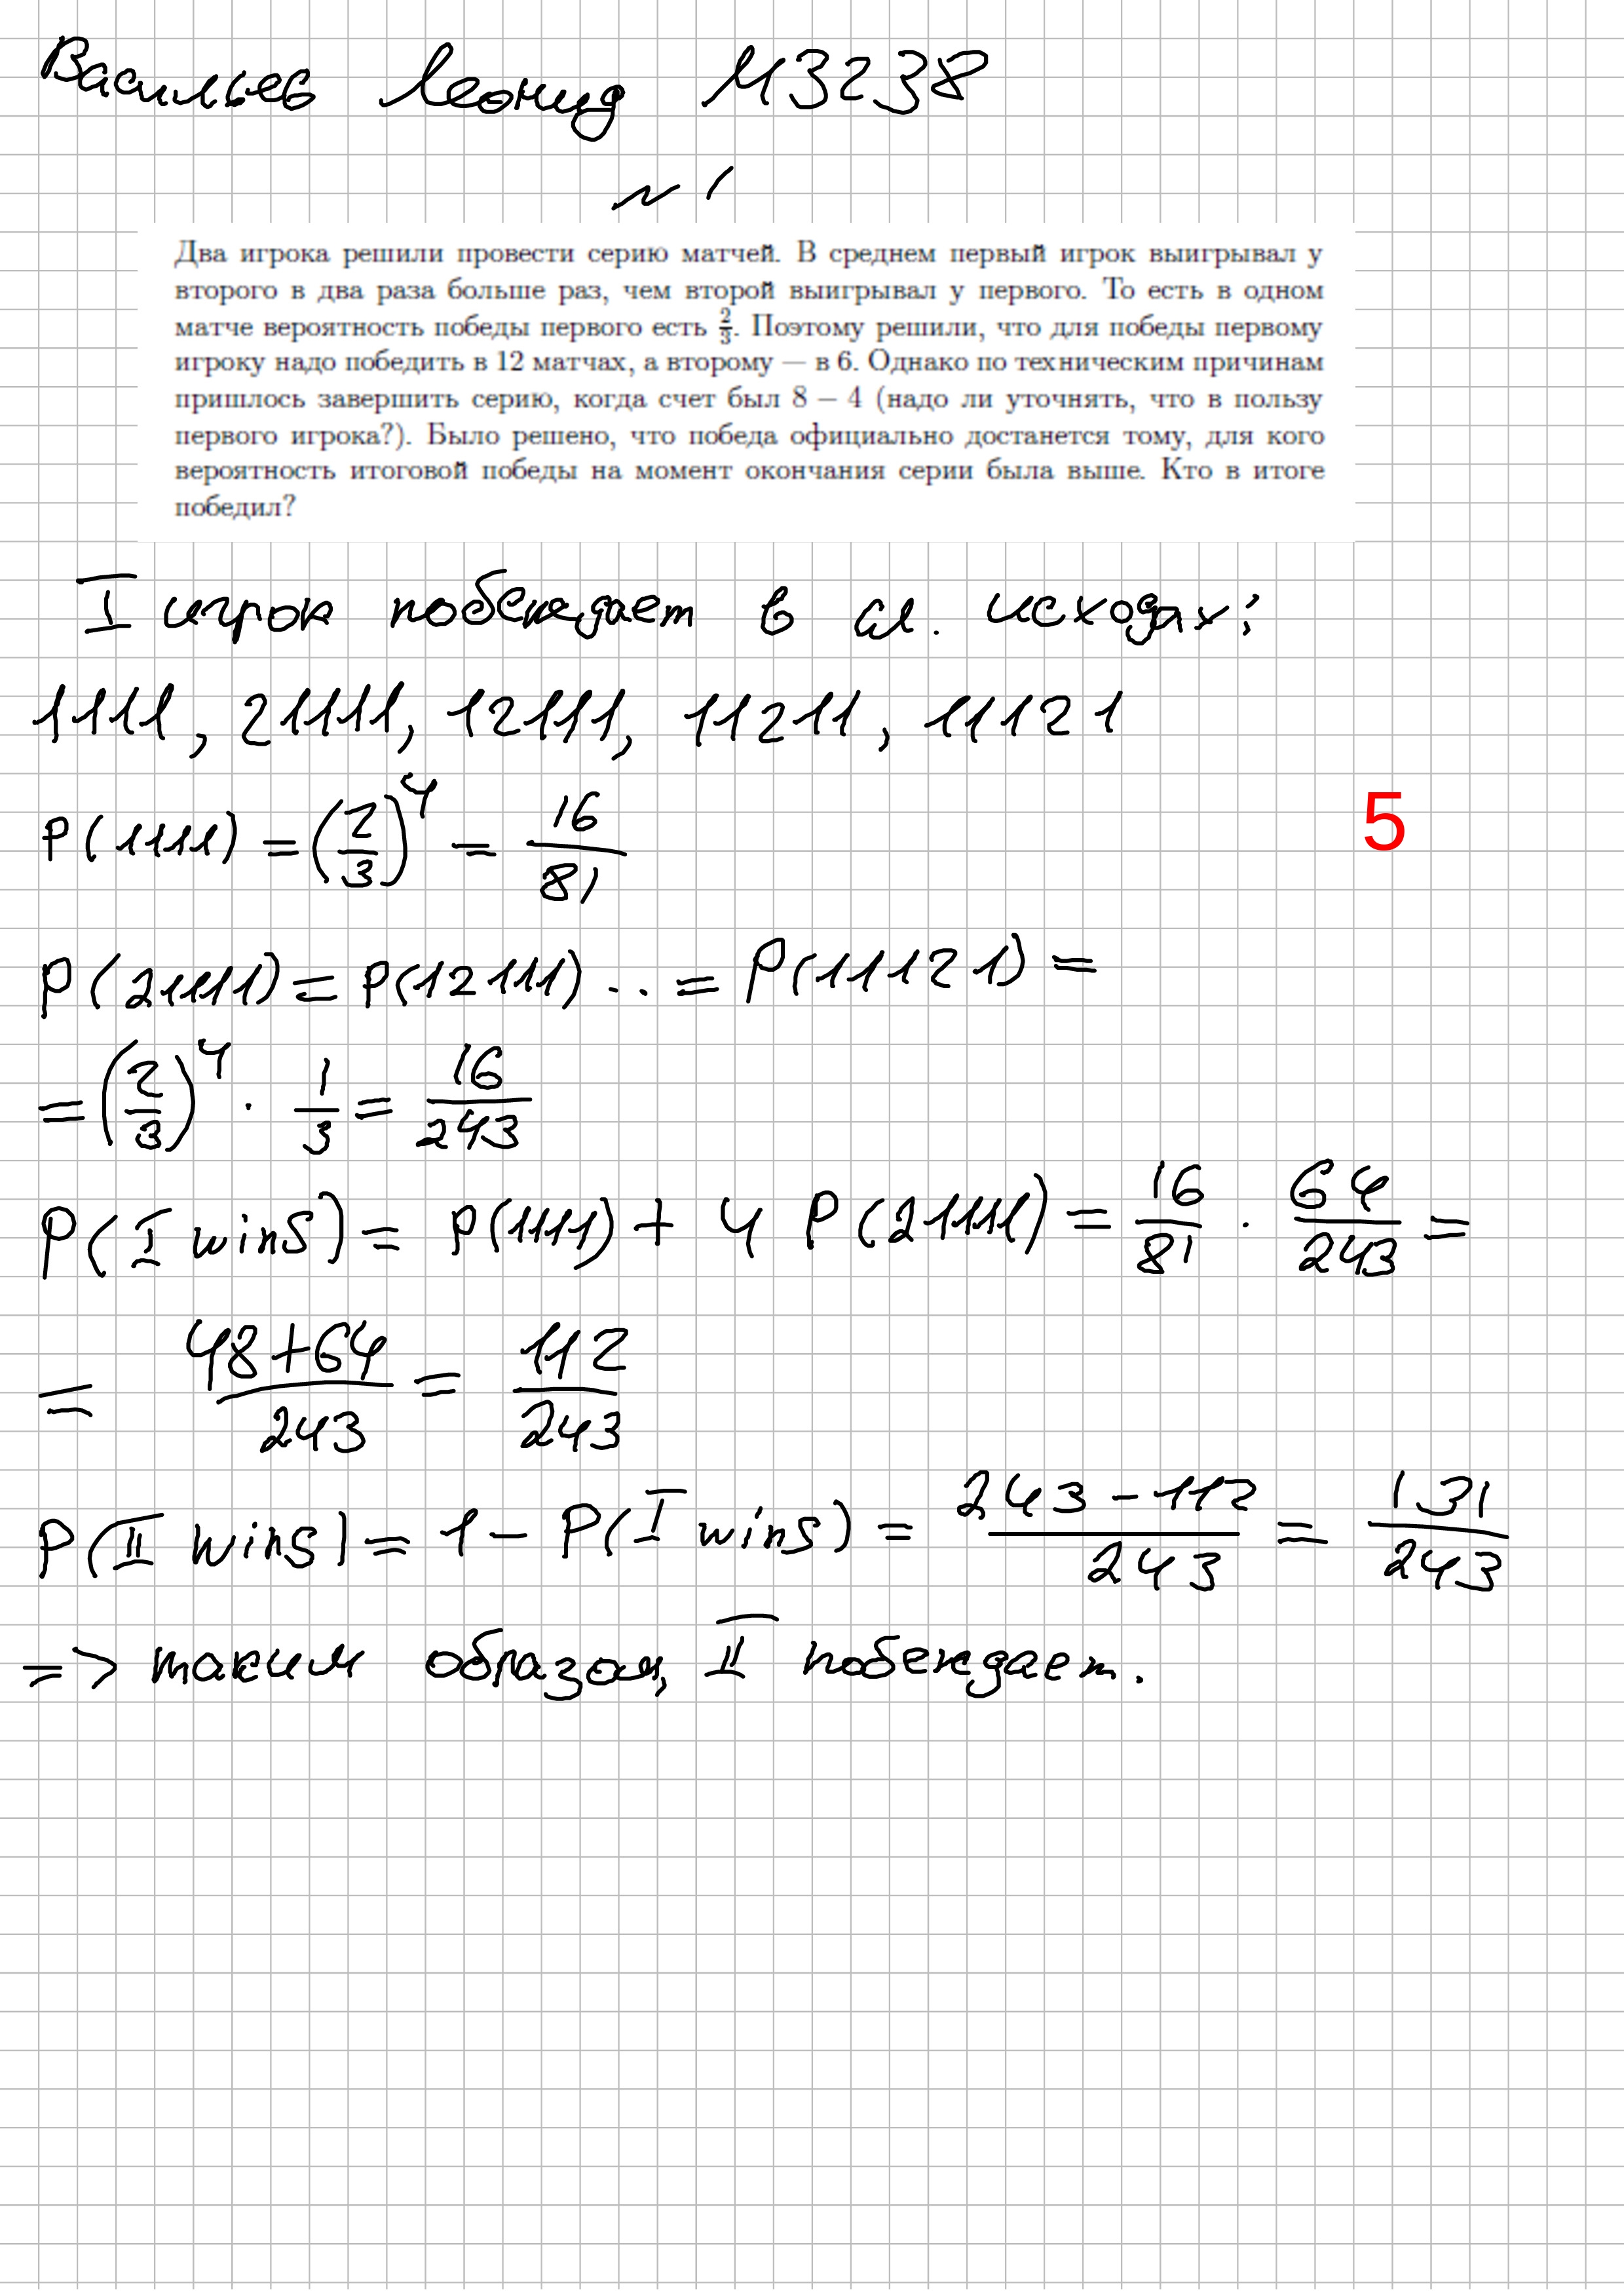 Васильев Леонид М3238
№ 1
Два игрока решили провести серию матчей. В среднем первый игрок выигрывал у
второго в два раза больше раз, чем второй выигрывал у первого. То есть в одном
матче вероятность победы первого есть 2/3. Поэтому решили, что для победы первому
игроку надо победить в 12 матчах, а второму — в 6. Однако по техническим причинам
пришлось завершить серию, когда счет был 8 – 4 (надо ли уточнять, что в пользу
первого игрока?). Было решено, что победа официально достанется тому, для кого
вероятность итоговой победы на момент окончания серии была выше. Кто в итоге
победил?
I игрок побеждает в сл. исходах:
1111, 21111, 12111, 11211, 11121
P(1111) = (2/3)^4 = 16/81
5
P(21111) = P(12111) .. = P(11121) =
= (2/3)^4 · 1/3 = 16/243
P(I wins) = P(1111) + 4 P(21111) = 16/81 · 64/243 =
= (48+64)/243 = 112/243
P(II wins) = 1 – P(I wins) = (243 – 112)/243 = 131/243
=> таким образом, II побеждает.